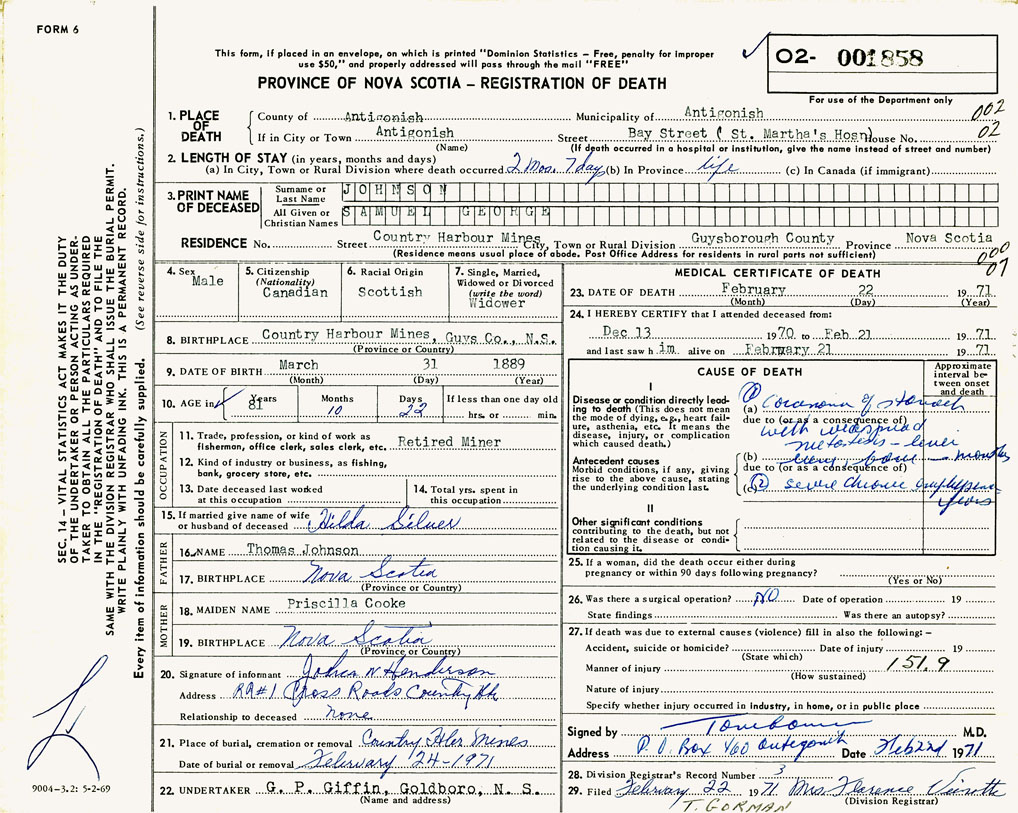 FORM 6
This form, if placed in an envelope, on which is printed "Dominion Statistics – Free, penalty for improper
use $50," and properly addressed will pass through the mail "FREE"
PROVINCE OF NOVA SCOTIA – REGISTRATION OF DEATH
02- 001858
For use of the Department only
002
02
1. PLACE OF DEATH
County of Antigonish Municipality of Antigonish
If in City or Town Antigonish Street Bay Street ( St. Martha's Hosp) House No.
(Name) (If death occurred in a hospital or institution, give the name instead of street and number)
2. LENGTH OF STAY (in years, months and days)
(a) In City, Town or Rural Division where death occurred 2 Mos. 7 day (b) In Province life (c) In Canada (if immigrant)
3. PRINT NAME OF DECEASED
Surname or Last Name JOHNSON
All Given or Christian Names SAMUEL GEORGE
RESIDENCE No. Street Country Harbour Mines City, Town or Rural Division Guysborough County Province Nova Scotia
(Residence means usual place of abode. Post Office Address for residents in rural parts not sufficient)
000
07
4. Sex
Male
5. Citizenship
(Nationality)
Canadian
6. Racial Origin
Scottish
7. Single, Married,
Widowed or Divorced
(write the word)
Widower
8. BIRTHPLACE Country Harbour Mines, Guys Co., N.S.
(Province or Country)
9. DATE OF BIRTH March 31 1889
(Month) (Day) (Year)
10. AGE in Years Months Days If less than one day old
81 10 22 hrs. or min.
OCCUPATION
11. Trade, profession, or kind of work as
fisherman, office clerk, sales clerk, etc. Retired Miner
12. Kind of industry or business, as fishing,
bank, grocery store, etc.
13. Date deceased last worked
at this occupation
14. Total yrs. spent in
this occupation
15. If married give name of wife
or husband of deceased Hilda Silver
FATHER
16. NAME Thomas Johnson
17. BIRTHPLACE Nova Scotia
(Province or Country)
MOTHER
18. MAIDEN NAME Priscilla Cooke
19. BIRTHPLACE Nova Scotia
(Province or Country)
20. Signature of informant John W Henderson
Address RR#1 Cross Roads Country Hb
Relationship to deceased none
21. Place of burial, cremation or removal Country Hbr Mines
Date of burial or removal February 24-1971
22. UNDERTAKER G. P. Giffin, Goldboro, N. S.
(Name and address)
MEDICAL CERTIFICATE OF DEATH
23. DATE OF DEATH February 22 1971
(Month) (Day) (Year)
24. I HEREBY CERTIFY that I attended deceased from:
Dec 13 1970 to Feb 21 1971
and last saw him alive on February 21 1971
CAUSE OF DEATH
Approximate
interval be-
tween onset
and death
I
Disease or condition directly lead-
ing to death (This does not mean
the mode of dying, e.g., heart fail-
ure, asthenia, etc. It means the
disease, injury, or complication
which caused death.)
(a) of stomach
due to (or as a consequence of)
with widespread
metastasis – liver
Antecedent causes
Morbid conditions, if any, giving
rise to the above cause, stating
the underlying condition last.
(b) bone – months
due to (or as a consequence of)
(c) (2) severe chronic
years
II
Other significant conditions
contributing to the death, but not
related to the disease or condi-
tion causing it.
25. If a woman, did the death occur either during
pregnancy or within 90 days following pregnancy?
(Yes or No)
26. Was there a surgical operation? NO Date of operation 19
State findings Was there an autopsy?
27. If death was due to external causes (violence) fill in also the following: –
Accident, suicide or homicide? Date of injury 19
(State which)
Manner of injury 151.9
(How sustained)
Nature of injury
Specify whether injury occurred in industry, in home, or in public place
Signed by M.D.
Address P.O. Box 460 Antigonish Date Feb 22nd 1971
28. Division Registrar's Record Number 3
29. Filed February 22 1971 Mrs. Florence
(Division Registrar)
T. GORMAN
SEC. 14 – VITAL STATISTICS ACT MAKES IT THE DUTY
OF THE UNDERTAKER OR PERSON ACTING AS UNDER-
TAKER TO OBTAIN ALL THE PARTICULARS REQUIRED
IN THE "REGISTRATION OF DEATH" AND TO FILE THE
SAME WITH THE DIVISION REGISTRAR WHO SHALL ISSUE THE BURIAL PERMIT.
WRITE PLAINLY WITH UNFADING INK. THIS IS A PERMANENT RECORD.
Every item of information should be carefully supplied. (See reverse side for instructions.)
9004-3.2: 5-2-69